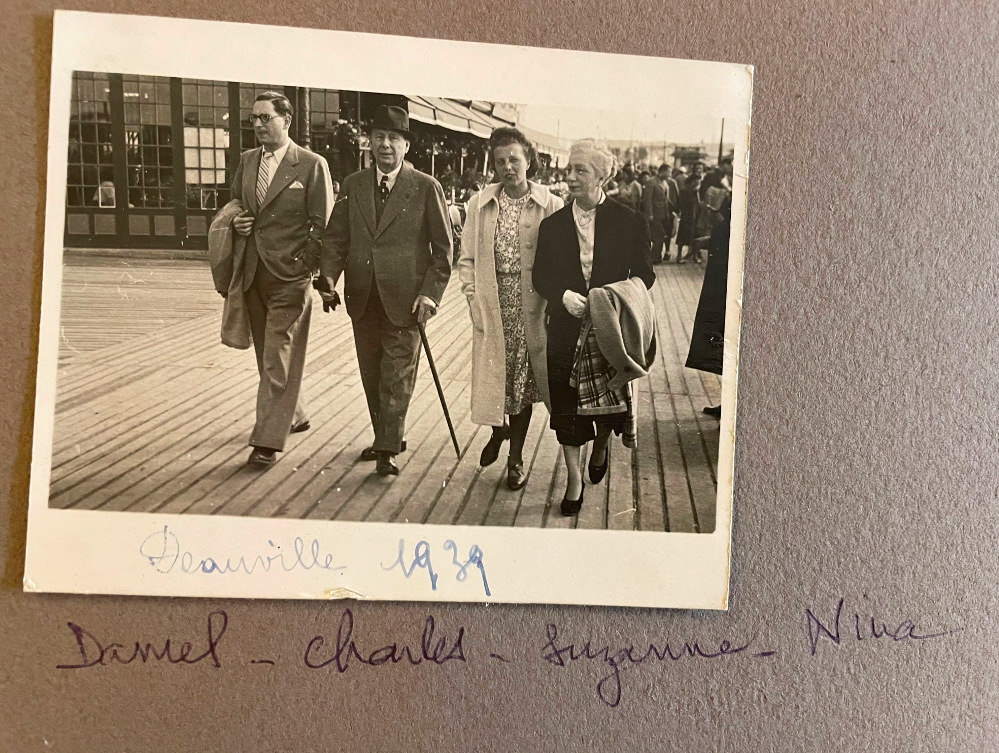 Deauville 1939
Daniel - Charles - Suzanne - Nina